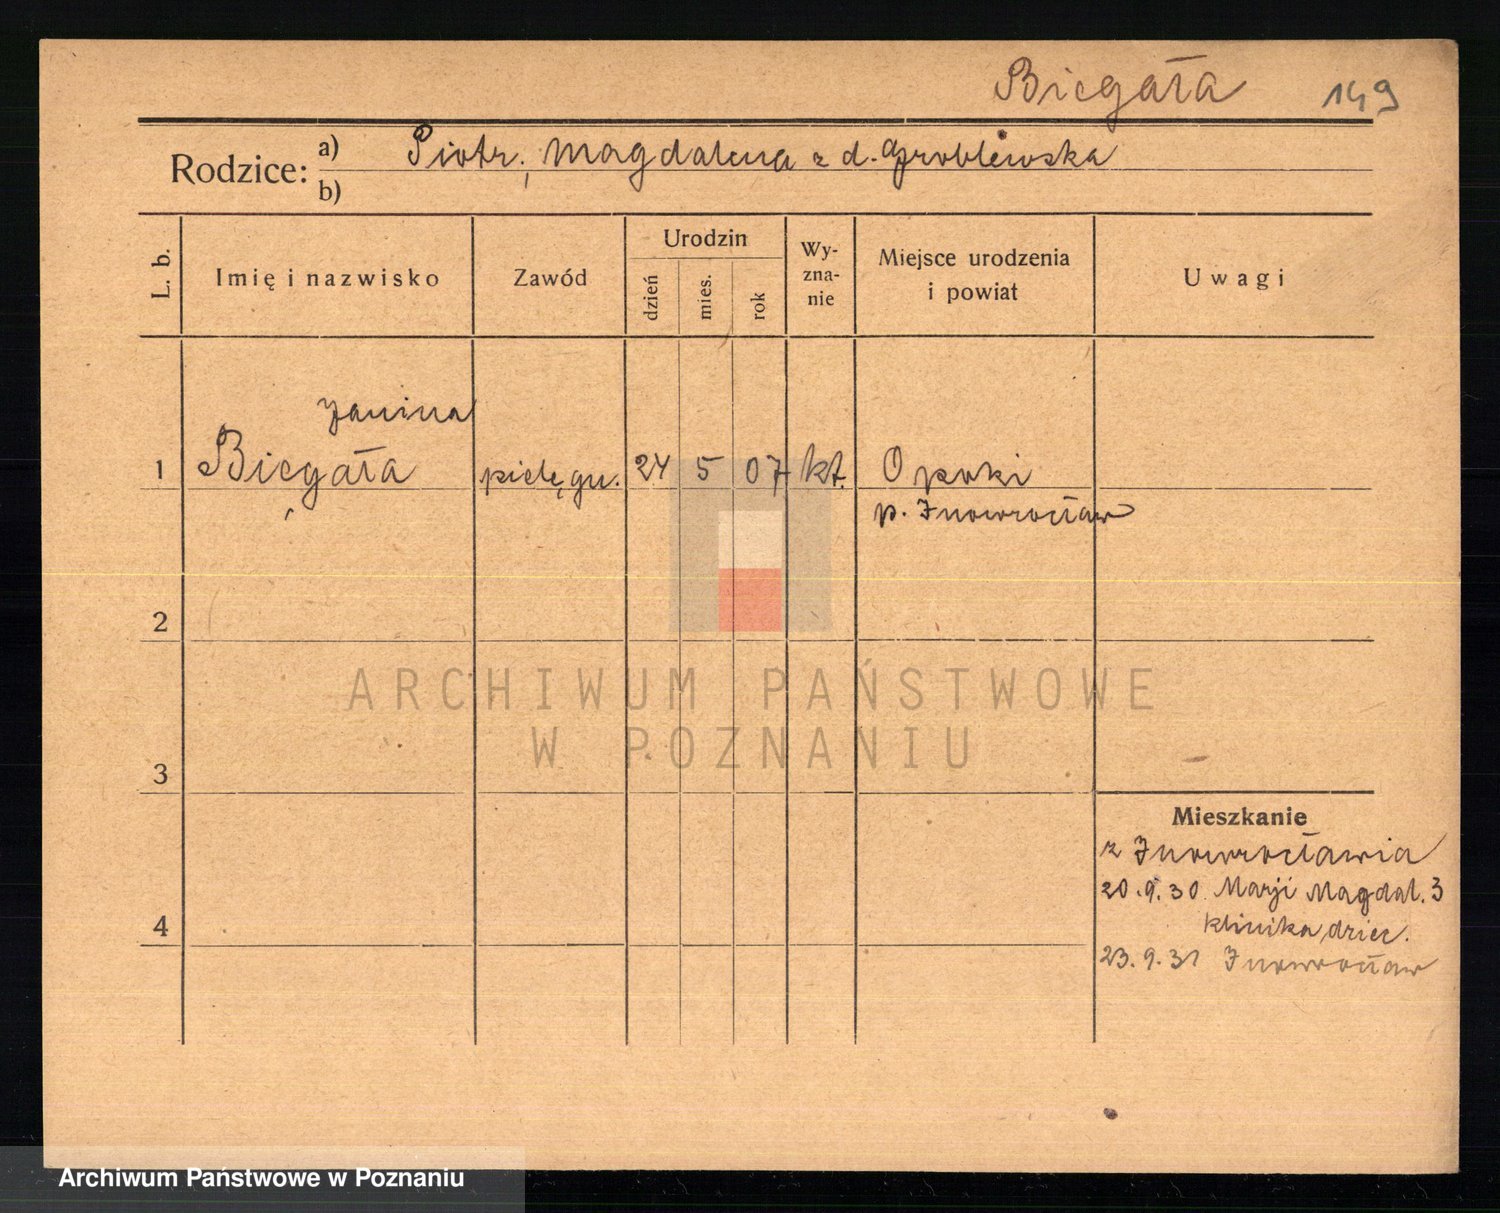 Biegała 149
Rodzice: a) Piotr, Magdalena z d. Groblewska
b)
L. b.
Imię i nazwisko
Zawód
Urodzin
dzień
mies.
rok
Wy-
zna-
nie
Miejsce urodzenia
i powiat
Uwagi
Janina
1 Biegała pielęgn. 24 5 07 kt. Opoki
p. Inowrocław
2
ARCHIWUM PAŃSTWOWE
W POZNANIU
3
Mieszkanie
z Inowrocławia
20.9.30. Marji Magdal. 3
klinika dziec.
4
23.9.31 Inowrocław
Archiwum Państwowe w Poznaniu